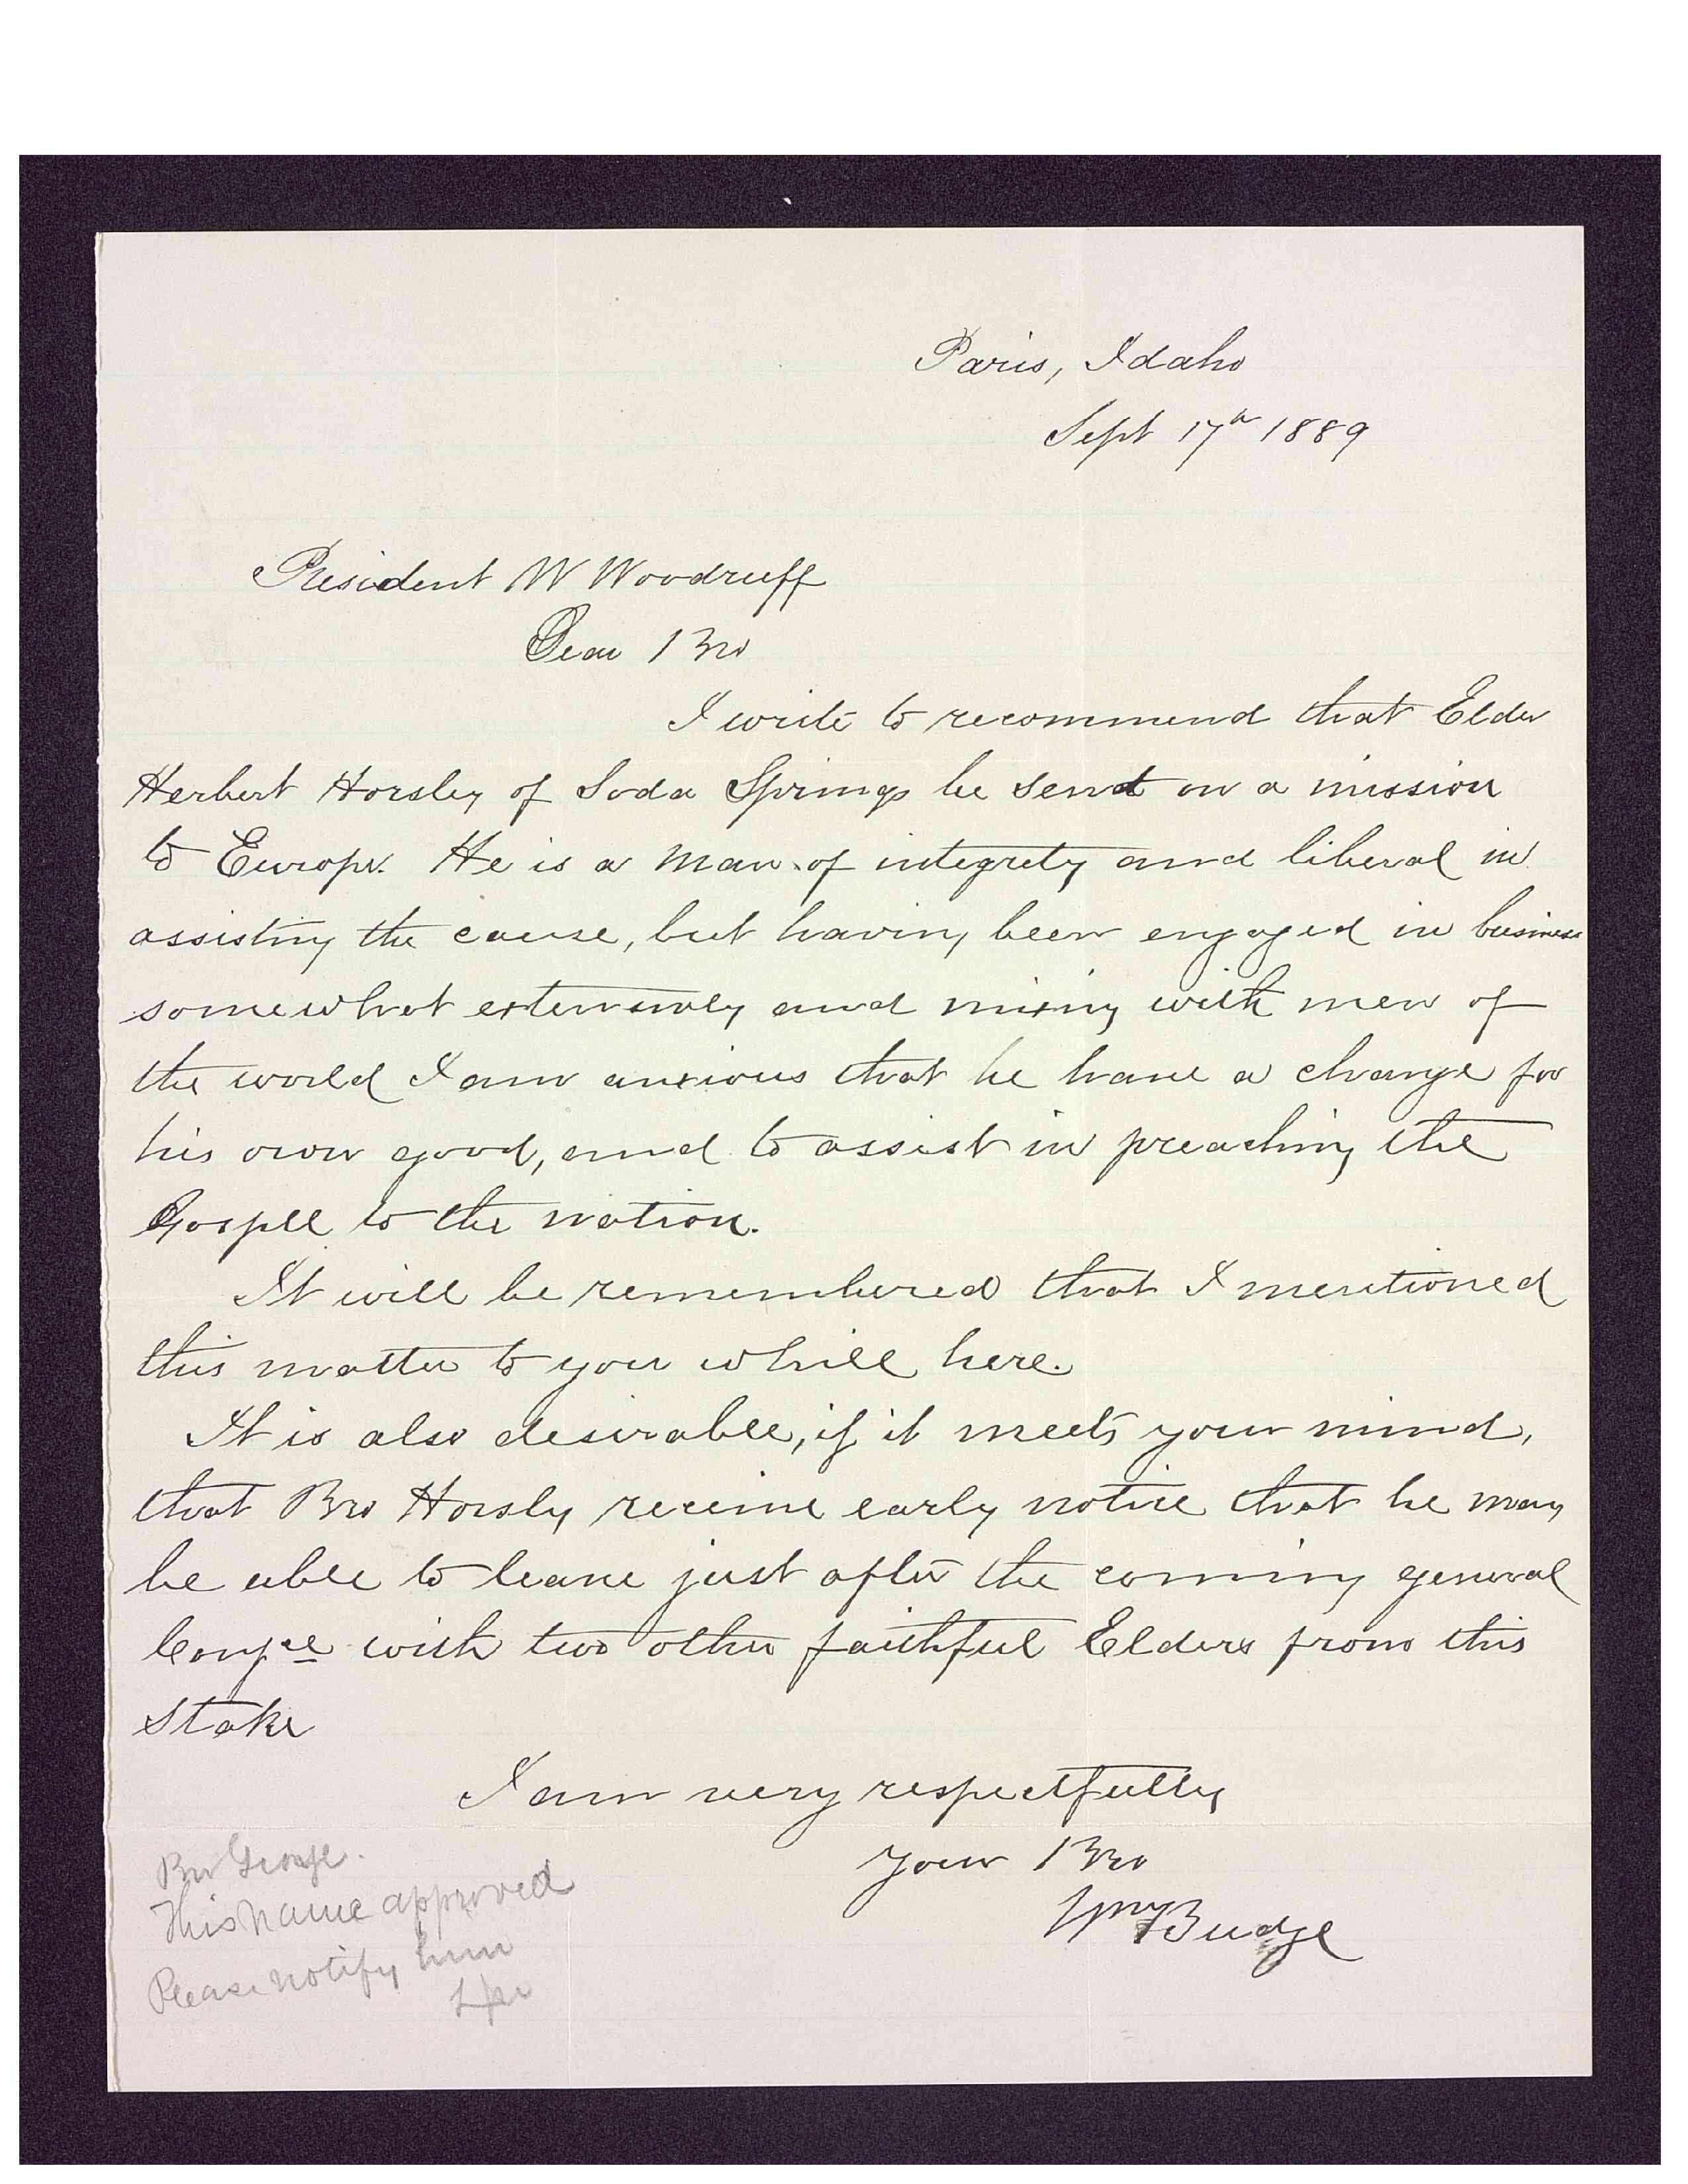 Paris, Idaho
Sept 17th 1889
President W Woodruff
Dear Bro
I write to recommend that Elder
Herbert Horsley of Soda Springs be send on a mission
to Europe. He is a man of integrety and liberal in
assisting the cause, but having been engaged in business
somewhat extensively and mixing with men of
the world I am anxious that he have a change for
his own good, and to assist in preaching the
Gospel to the nation.
It will be remembered that I mentioned
this matter to you while here.
It is also desirable, if it meets your mind,
that Bro Horsly receive early notice that he may
be able to leave just after the coming general
Confce with two other faithful Elders from this
Stake
I am very respectfully
your Bro
Wm Budge
Bro George.
This name approved
Please notify him